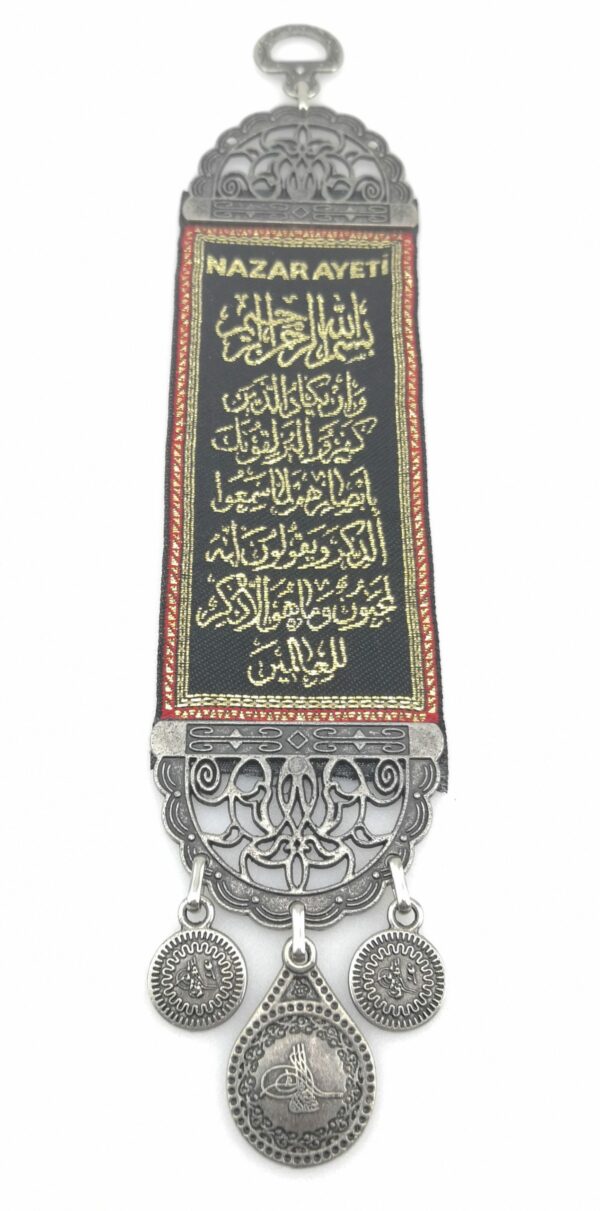 NAZAR AYETİ
بسم الله الرحمن الرحيم
وَإِن يَكَادُ الَّذِينَ
كَفَرُوا لَيُزْلِقُونَكَ
بِأَبْصَارِهِمْ لَمَّا سَمِعُوا
الذِّكْرَ وَيَقُولُونَ إِنَّهُ
لَمَجْنُونٌ وَمَا هُوَ إِلَّا ذِكْرٌ
لِلْعَالَمِينَ